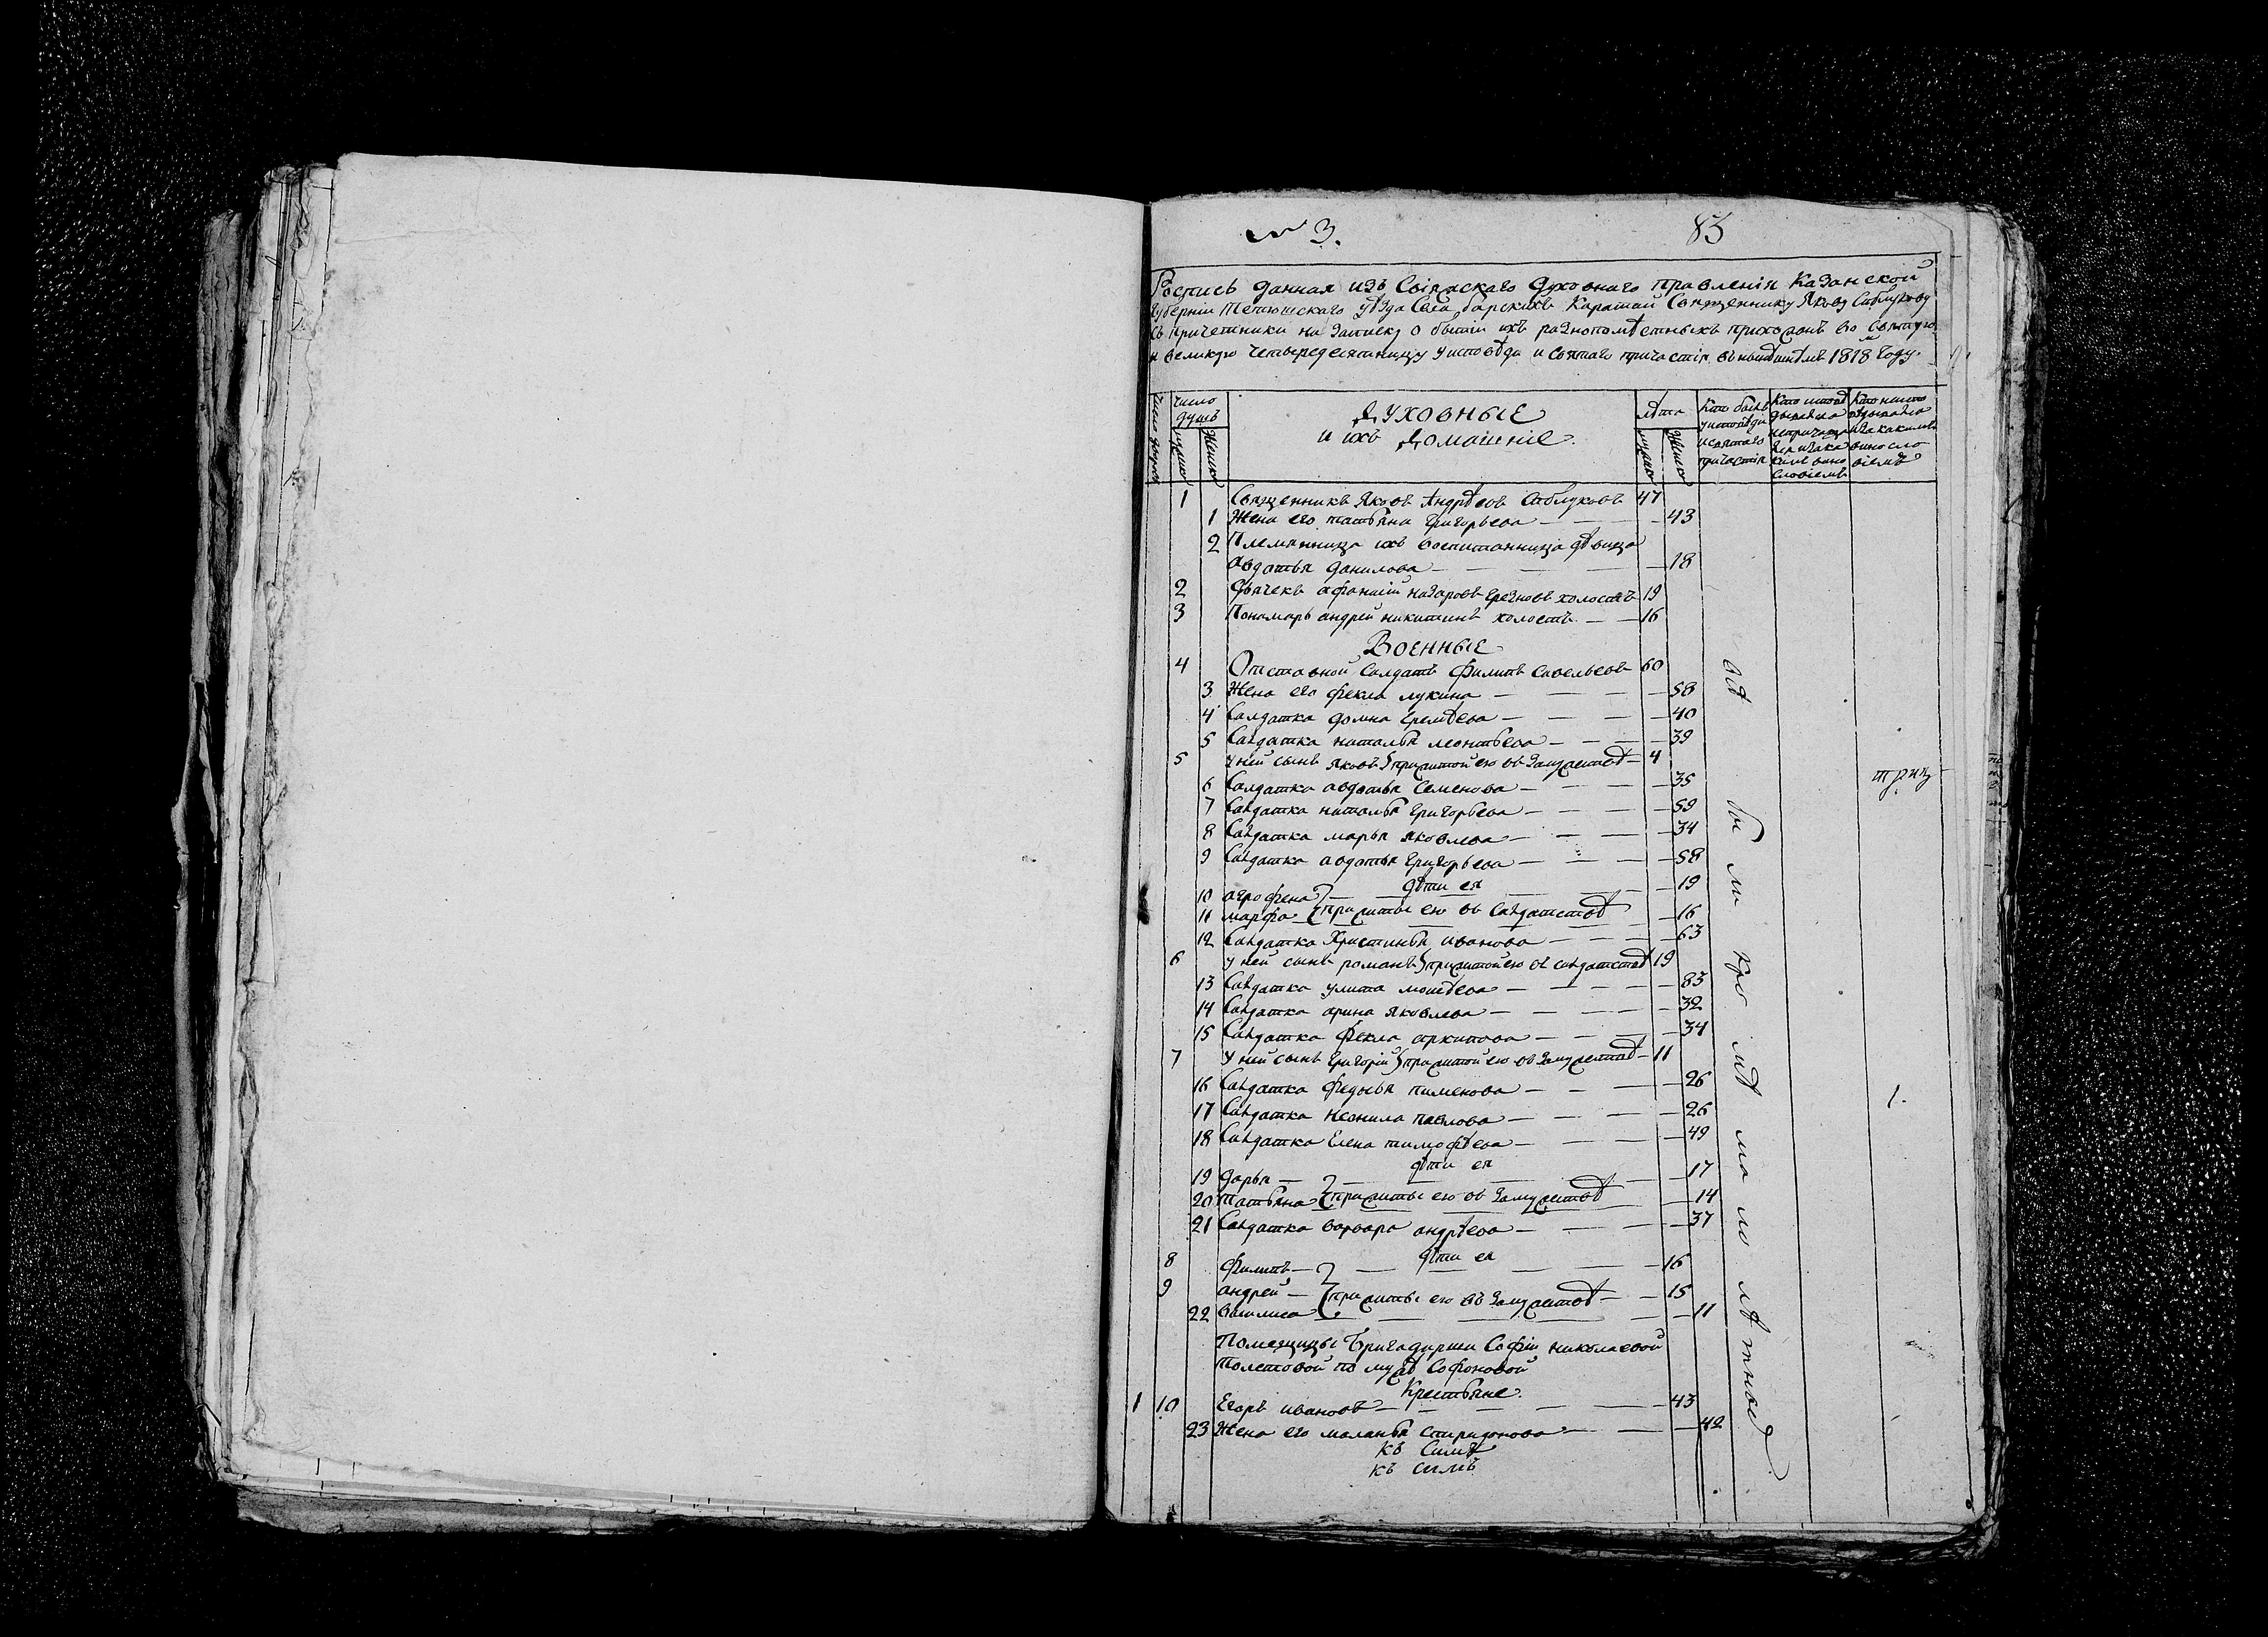 № 3.
83
Роспись данная изъ Свіяжскаго духовнаго правленія Казанской
губерніи Тетюшскаго уѣзда Села барскихъ Каратай Священнику Якову Стаблукову
съ причетники на записку о бытіи ихъ разнопомѣстныхъ прихожанъ во святую
и великую четыредесятницу у исповѣди и святаго причастія въ нынѣшнемъ 1818 году.
число дворовъ
число душъ
мужеска
женска
Духовные
и ихъ домашніе.
лѣта
мужеска
женска
Кто былъ у исповѣди и святаго причастія
Кто исповѣдывался а не причащался и за какимъ винословіемъ
Кто не исповѣдывался и за какимъ винословіемъ
1 Священникъ Яковъ Андрѣевъ 47
1 Жена его татьяна григорьева 43
2 Племянница ихъ воспитанница дѣвица
авдотья данилова 18
2 Дьячекъ афанасій назаровъ холостъ 19
3 Пономарь андрей никитинъ холостъ 16
Военные
4 Отставной салдатъ Филипъ савельевъ 60
3 Жена его фекла лукина 58
4 Салдатка домна еремѣева 40
5 Салдатка наталья леонтьева 39
5 у ней сынъ яковъ прижитой ею въ замужествѣ 4
6 Салдатка авдотья Семенова 35
7 Салдатка наталья григорьева 59
8 Салдатка марья яковлева 34
9 Салдатка авдотья григорьева 58
дѣти ея
10 агрофена 19
11 марфа прижиты ею въ салдатствѣ 16
12 Салдатка Христинья иванова 63
6 у ней сынъ романъ прижитой ею въ салдатствѣ 19
13 Салдатка улита моисѣева 83
14 Салдатка арина яковлева 32
15 Салдатка Фекла архипова 34
7 у ней сынъ григорій прижитой ею въ замужествѣ 11
16 Салдатка федосья пименова 26
17 Салдатка неонила павлова 26
18 Салдатка Елена тимофѣева 49
дѣти ея
19 дарья 17
20 татьяна прижиты ею въ замужествѣ 14
21 Салдатка варвара андрѣева 37
дѣти ея
8 Филипъ 16
9 андрей прижиты ею въ замужествѣ 15
22 василиса 11
Помещицы Бригадирши Софіи николаевой
толстовой по мужѣ Софоновой
Крестьяне.
1 10 Егоръ ивановъ 43
23 Жена его маланья спиридонова 42
къ Симъ
къ симъ
всѣ были кромѣ малолѣтныхъ
1.